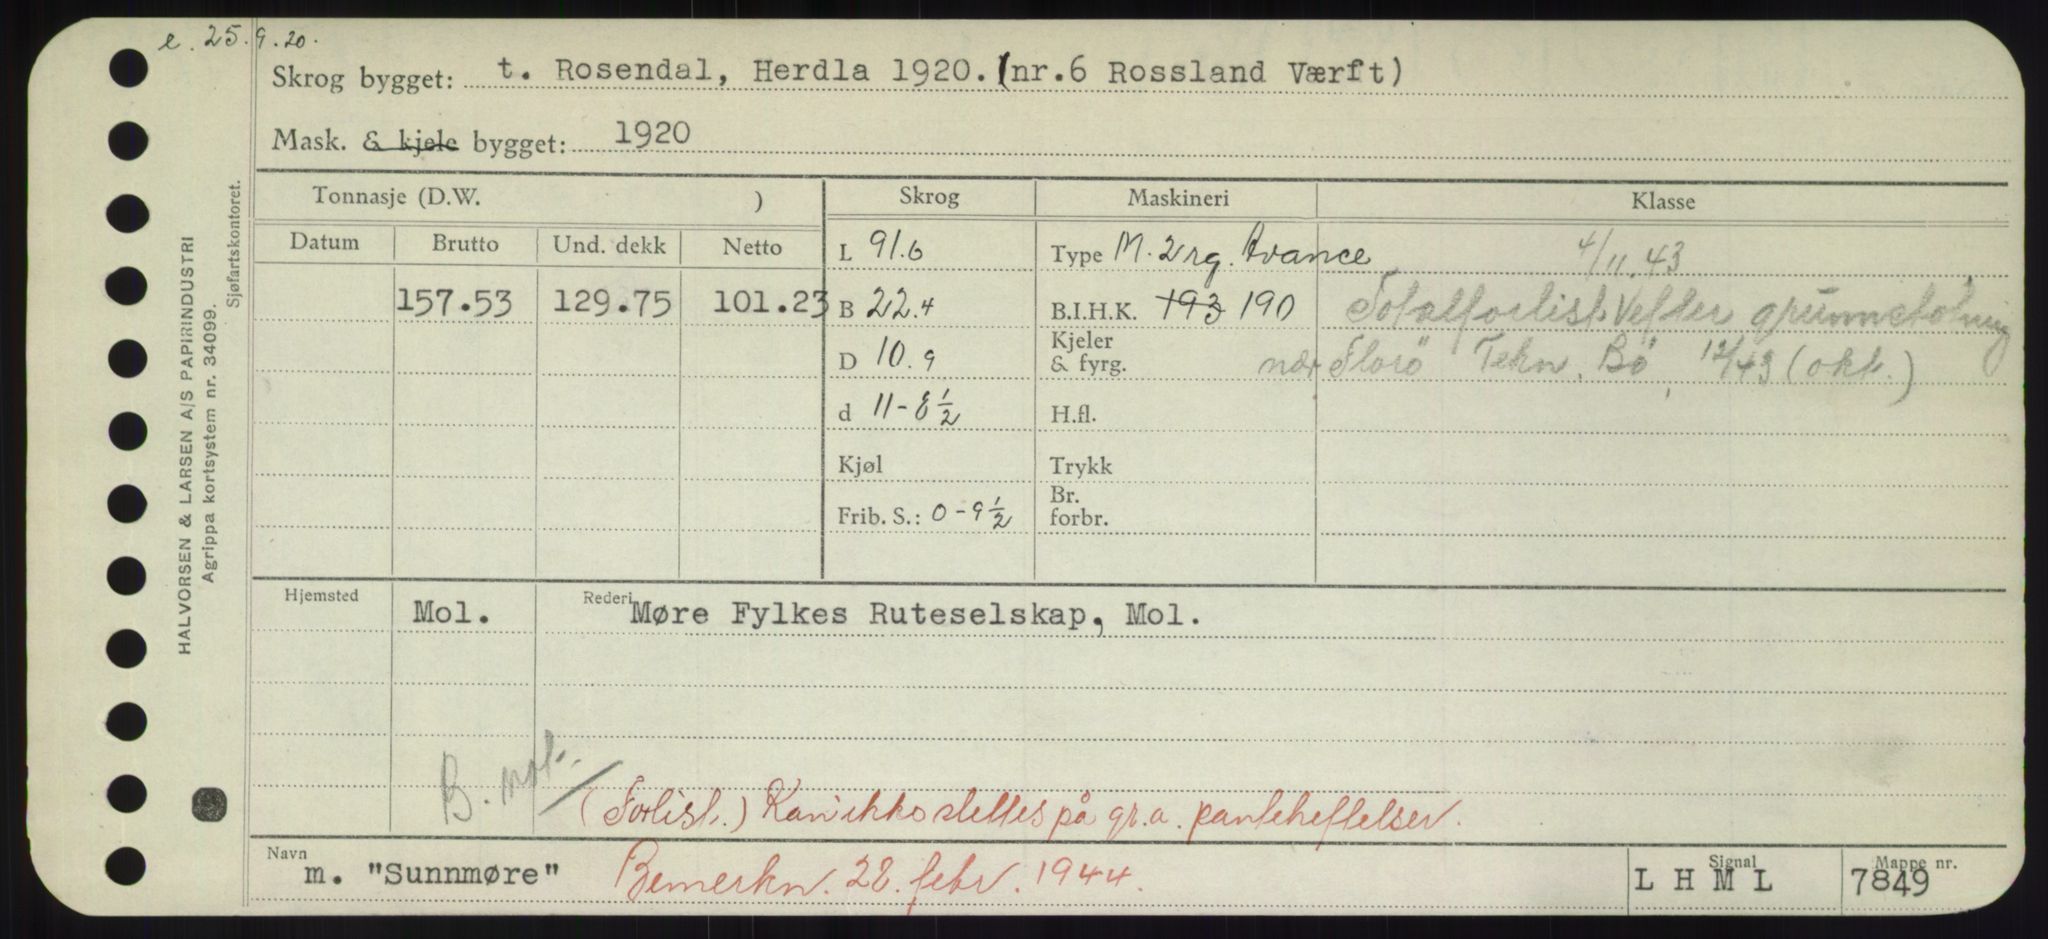 e. 25.9.20.
Skrog bygget: t. Rosendal, Herdla 1920. (nr.6 Rossland Værft)
Mask. & kjele bygget: 1920
Tonnasje (D.W. ) Skrog Maskineri Klasse
Datum Brutto Und. dekk Netto L 91.6 Type M. 2 rg. Avance 4/11.43
157.53 129.75 101.23 B 22.4 B.I.H.K. 193 190 Totalforlist efter grunnstøtning
D 10.9 Kjeler & fyrg. nær Florø Tekn. Bö, 12/43 (okt.)
d 11-8½ H.fl.
Kjøl Trykk
Frib. S.: 0-9½ Br. forbr.
Hjemsted Mol. Rederi Møre Fylkes Ruteselskap, Mol.
B. not.
(Forlist.) Kan ikke slettes på gr.a. panteheftelser.
Navn m. "Sunnmøre" Bemerkn. 28. febr. 1944. Signal L H M L Mappe nr. 7849
HALVORSEN & LARSEN A/S PAPIRINDUSTRI
Agrippa kortsystem nr. 34099.
Sjøfartskontoret.